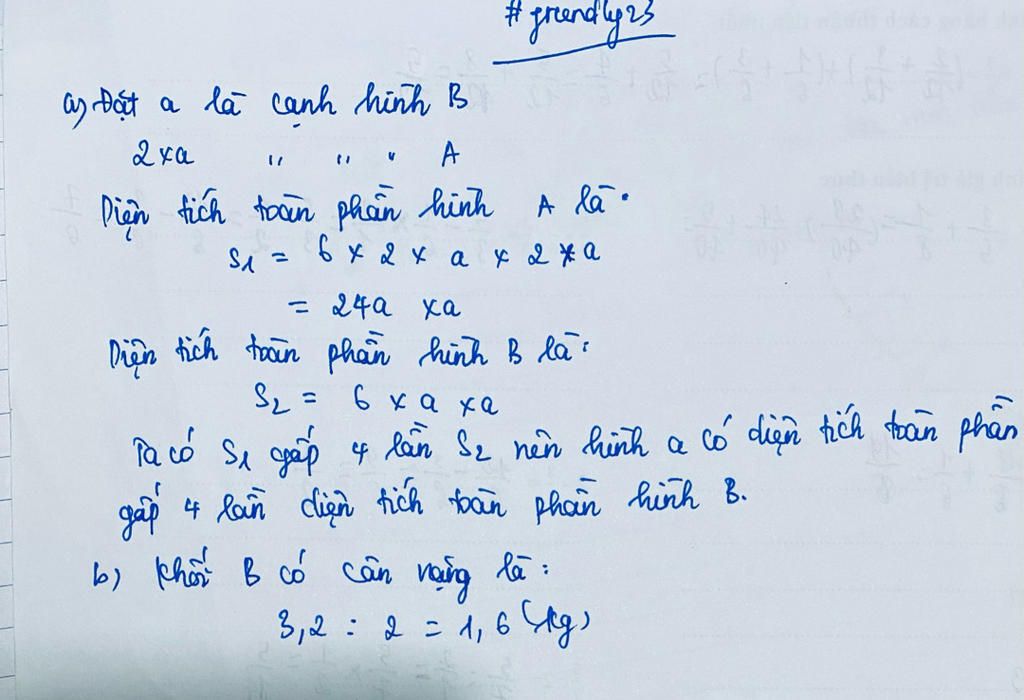 #greendly23
a) Đặt a là cạnh hình B
2xa " " " A
Diện tích toàn phần hình A là:
S1 = 6 x 2 x a x 2 x a
= 24a xa
Diện tích toàn phần hình B là:
S2 = 6 x a xa
Ta có S1 gấp 4 lần S2 nên hình a có diện tích toàn phần
gấp 4 lần diện tích toàn phần hình B.
b) Khối B có cân nặng là:
3,2 : 2 = 1,6 (kg)